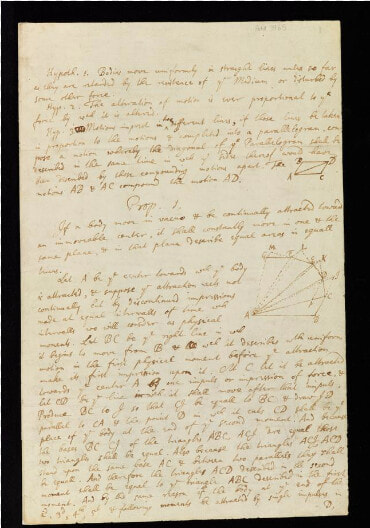 Hypoth. 1. Bodies move uniformly in straight lines unless so far
as they are retarded by the resistence of yͤ Medium or disturbed by
some other force.
Hyp. 2. The alteration of motion is ever proportional to yͤ
force by wᶜʰ it is altered.
Hyp. Motions imprest in different lines, if those lines be taken
in proportion to the motions & completed into a parallelogram, com
pose a motion whereby the diagonal of yͤ Parallelogram shall be
described in the same time in wᶜʰ yͤ sides thereof would have
been described by those compounding motions apart. The
motions AB & AC compound the motion AD.
B D
A C
Prop. 1.
If a body move in vacuo & be continually attracted toward
an immoveable center, it shall constantly move in one & the
same plane, & in that plane describe equal areas in equall
times.
Let A be yͤ center towards wᶜʰ yͤ body
is attracted, & suppose yͤ attraction acts not
continually but by discontinued impressions
made at equal intervalls of time wᶜʰ
intervalls we will consider as physical
moments. Let BC be yͤ right line in wᶜʰ
it begins to move from B & wᶜʰ it describes with uniform
motion in the first physical moment before yͤ attraction
make its first impression upon it. At C let it be attracted
towards yͤ center A by one impuls or impression of force, &
let CD be yͤ line in wᶜʰ it shall move after that impuls.
Produce BC to I so that CI be equall to BC & draw ID
parallel to CA & the point D in wᶜʰ it cuts CD shall be yͤ
place of yͤ body at the end of yͤ second moment. And because
the bases BC CI of the triangles ABC, ACI are equal those
two triangles shall be equal. Also because the triangles ACI, ACD
stand upon the same base AC & between two parallels they shall
be equall. And therefore the triangle ACD described in the second
moment shall be equal to yͤ triangle ABC described in the first
moment. And by the same reason if the body at the end of the
2ᵈ, 3ᵈ, 4ᵗʰ, 5ᵗʰ & following moments be attracted by single impulses in
D,